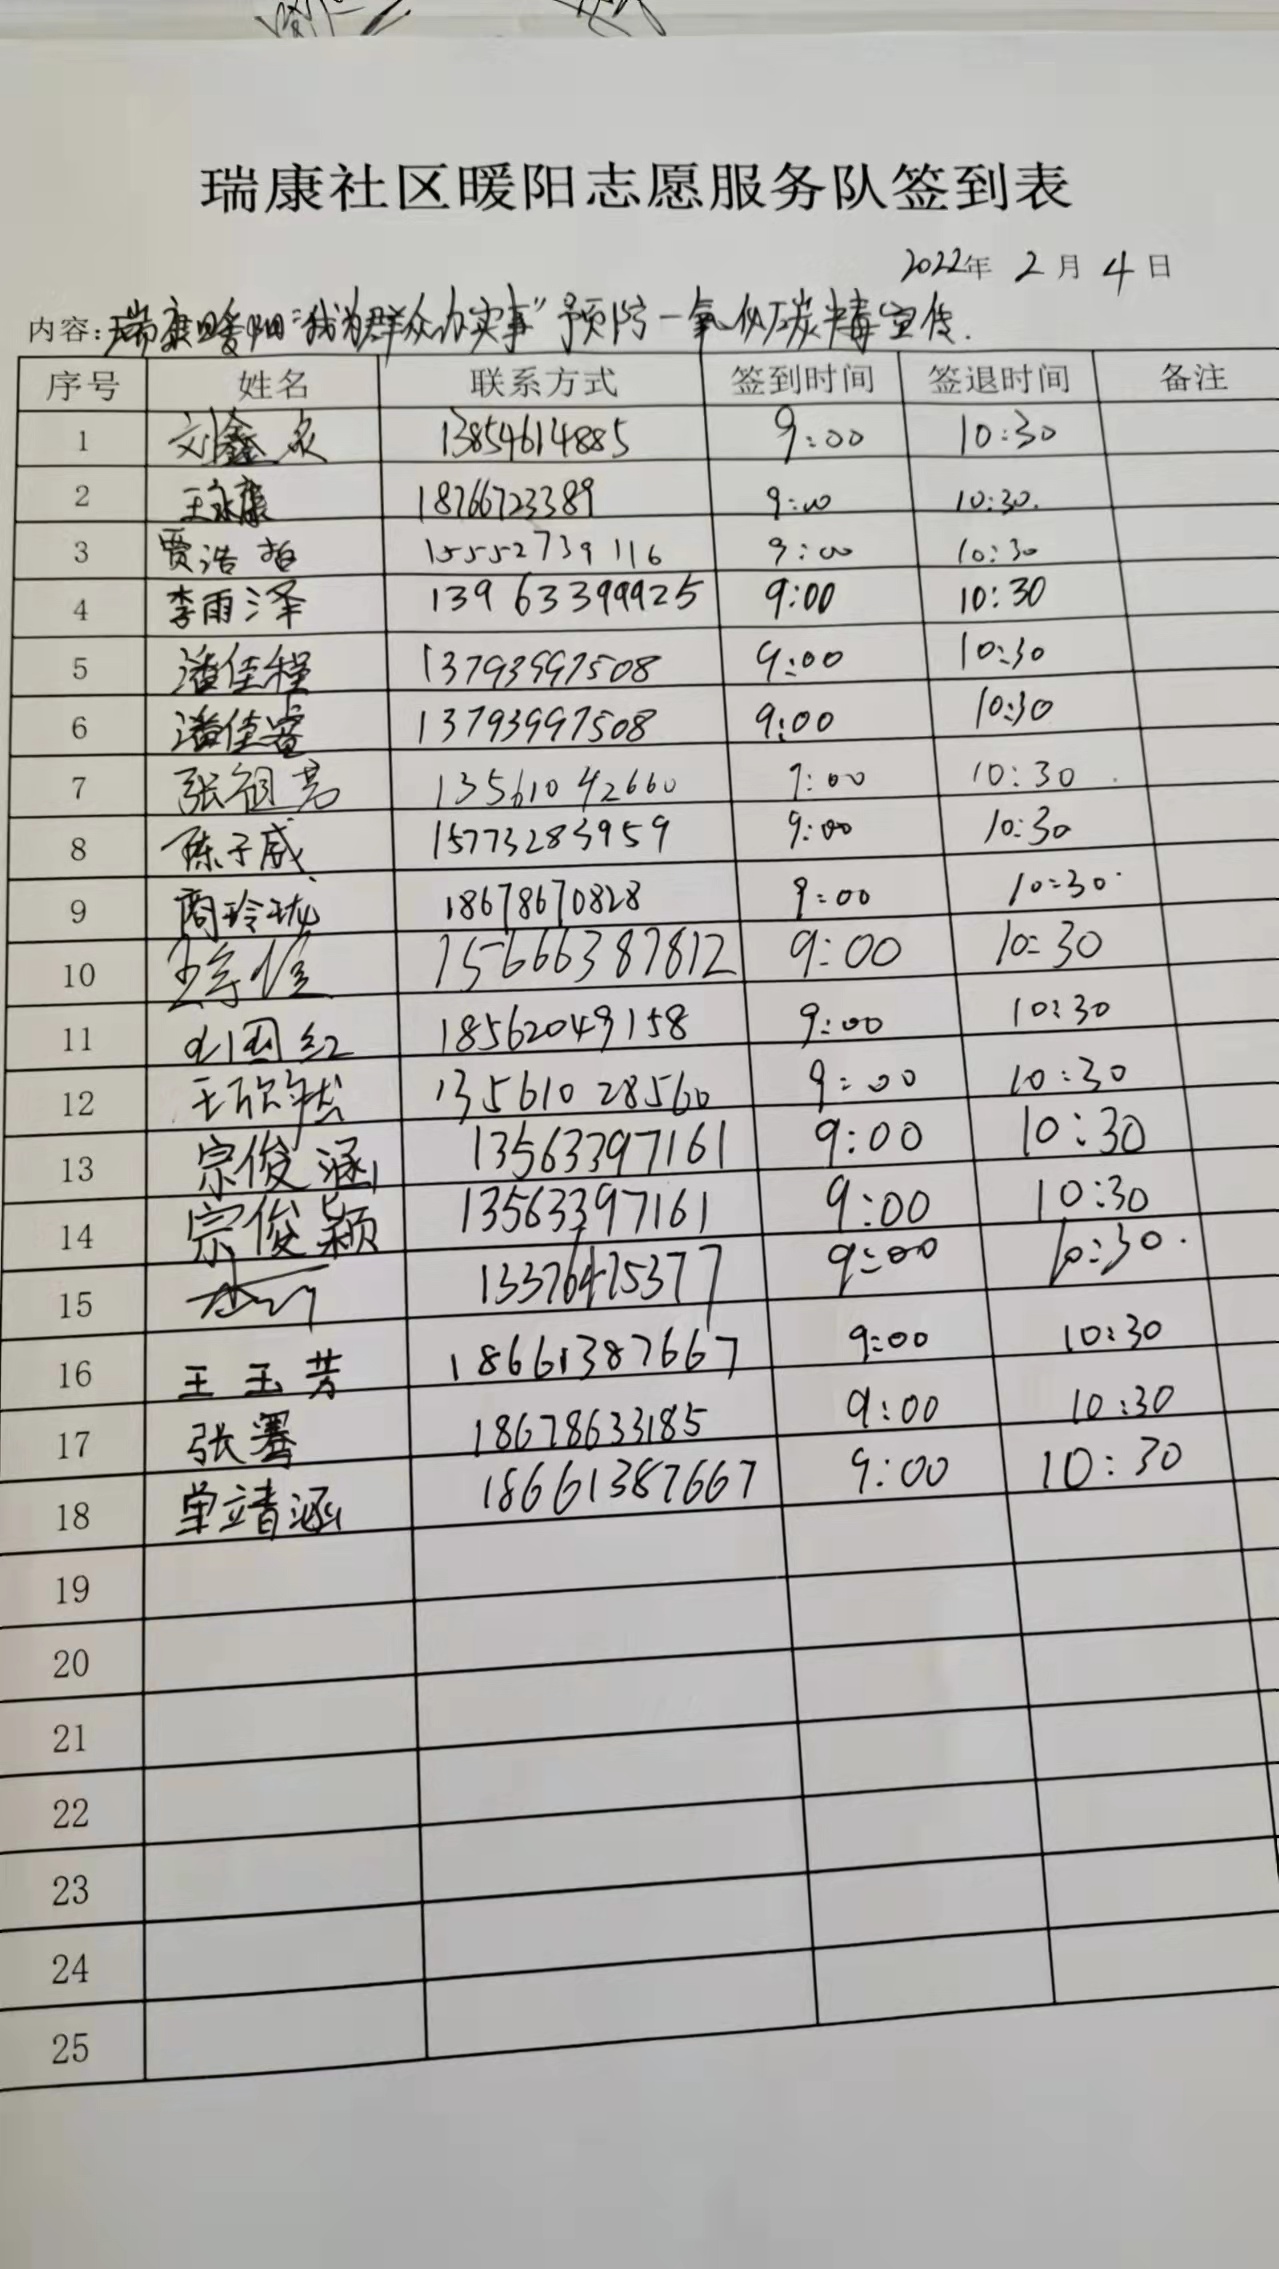 瑞康社区暖阳志愿服务队签到表
2022年 2月 4日
内容：瑞康暖阳"我为群众办实事"预防一氧化碳中毒宣传.
序号 姓名 联系方式 签到时间 签退时间 备注
1 刘鑫炎 13854614885 9:00 10:30
2 王永康 18766723389 9:00 10:30.
3 贾浩 15552739116 9:00 10:30
4 李雨泽 13963399925 9:00 10:30
5 潘佳程 13793997508 9:00 10:30
6 潘佳睿 13793997508 9:00 10:30
7 张祖芸 13561042660 9:00 10:30
8 陈子威 15773283959 9:00 10:30
9 商玲珑 18678670828 9:00 10:30
10 9:00 10:30
11 国红 18562049158 9:00 10:30
12 王欣 13561028560 9:00 10:30
13 宗俊涵 13563397161 9:00 10:30
14 宗俊颖 13563397161 9:00 10:30
15 13376475377 9:00 10:30.
16 王玉芳 18661387667 9:00 10:30
17 张骞 18678633185 9:00 10:30
18 单靖涵 18661387667 9:00 10:30
19
20
21
22
23
24
25